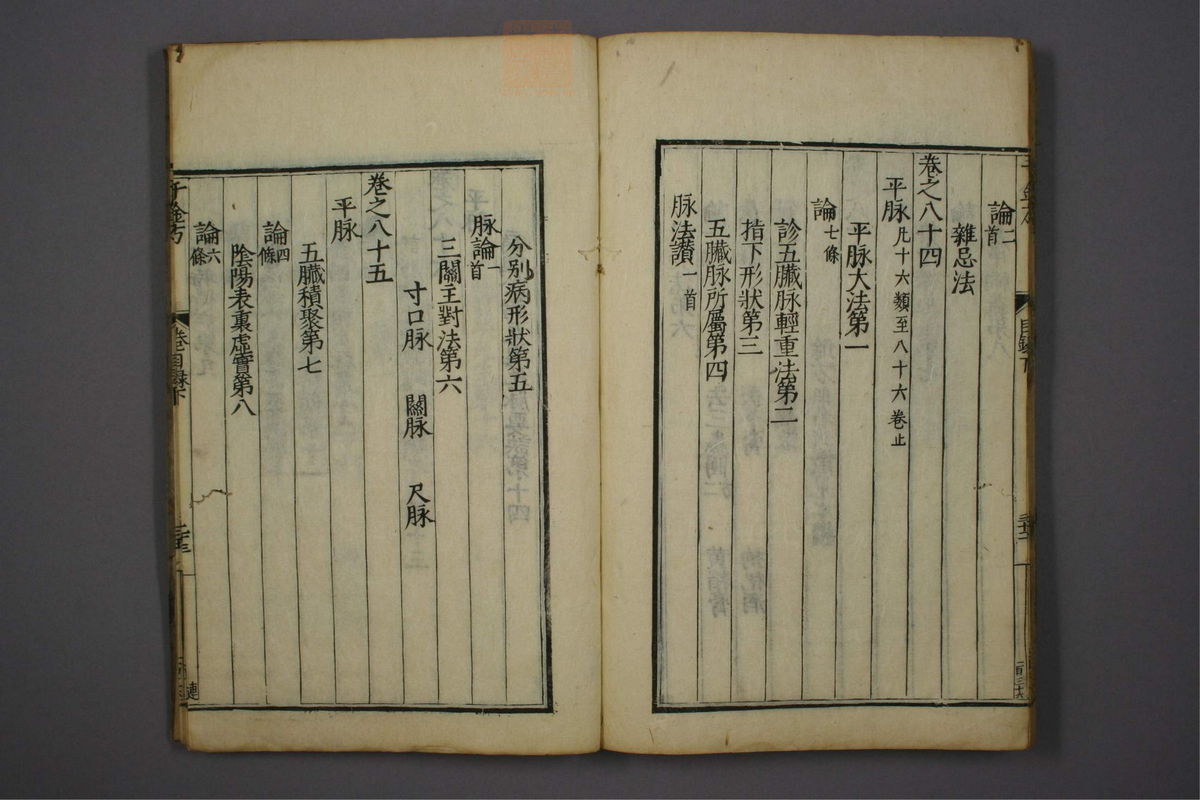 論二首
雜忌法
卷之八十四
平脉凡十六類至八十六卷止
平脉大法第一
論七條
診五臟脉輕重法第二
指下形狀第三
五臟脉所屬第四
脉法讚一首
分別病形狀第五
脉論一首
三關主對法第六
寸口脉 關脉 尺脉
卷之八十五
平脉
五臟積聚第七
論四條
陰陽表裏虛實第八
論六條
千金方
卷目録下